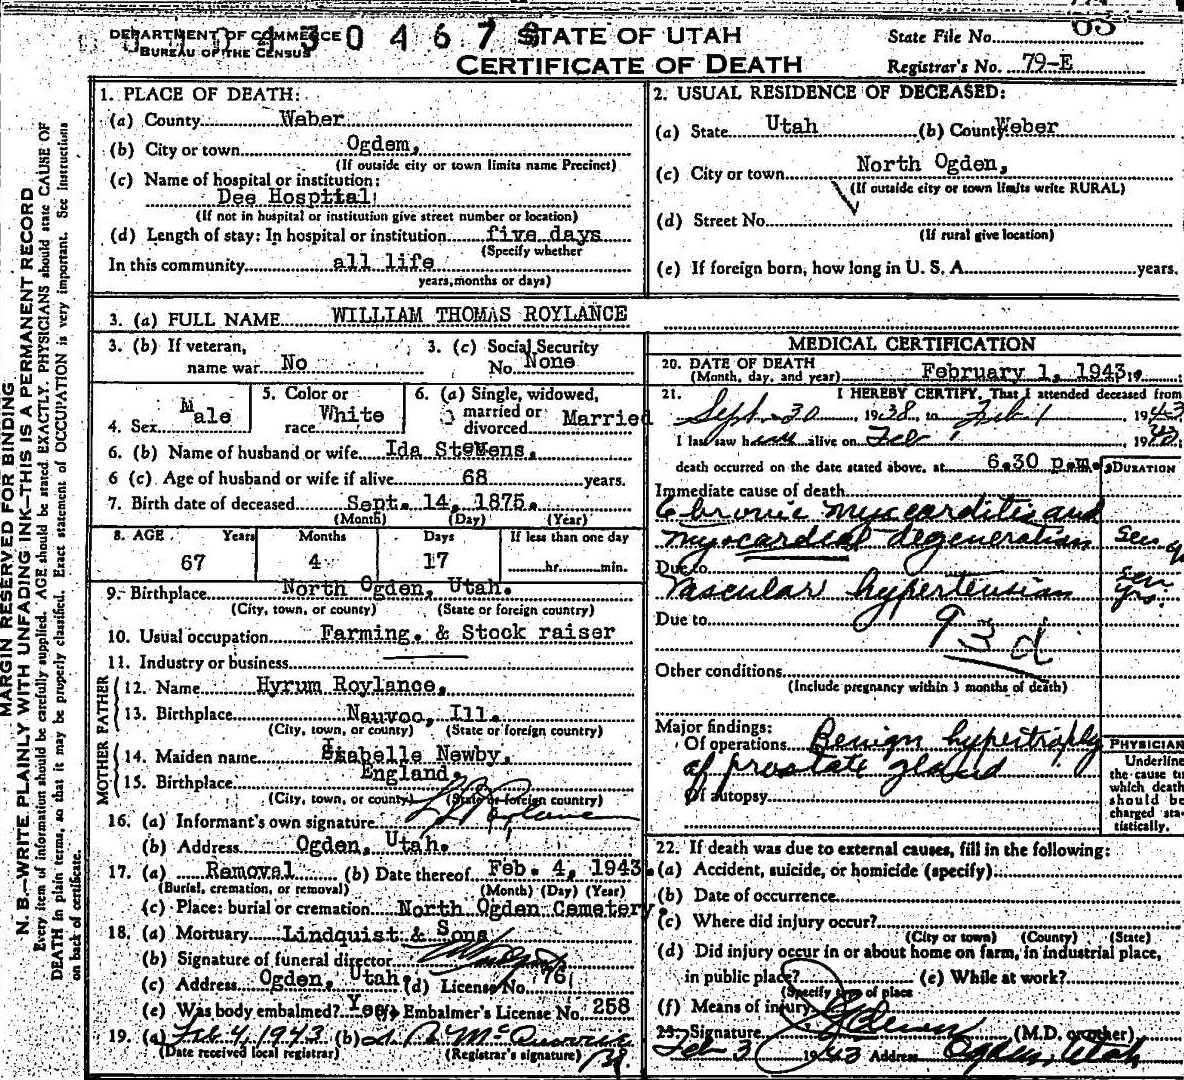 DEPARTMENT OF COMMERCE
BUREAU OF THE CENSUS
430467
STATE OF UTAH
CERTIFICATE OF DEATH
State File No. 63
Registrar's No. 79-E
MARGIN RESERVED FOR BINDING
N. B.—WRITE PLAINLY WITH UNFADING INK—THIS IS A PERMANENT RECORD
Every item of information should be carefully supplied. AGE should be stated EXACTLY. PHYSICIANS should state CAUSE OF
DEATH in plain terms, so that it may be properly classified. Exact statement of OCCUPATION is very important. See instructions
on back of certificate.
1. PLACE OF DEATH:
(a) County Weber
(b) City or town Ogdem,
(If outside city or town limits name Precinct)
(c) Name of hospital or institution:
Dee Hosptial
(If not in hospital or institution give street number or location)
(d) Length of stay: In hospital or institution five days
(Specify whether
In this community all life
years, months or days)
2. USUAL RESIDENCE OF DECEASED:
(a) State Utah (b) County Weber
(c) City or town North Ogden,
(If outside city or town limits write RURAL)
(d) Street No.
(If rural give location)
(e) If foreign born, how long in U. S. A. years.
3. (a) FULL NAME WILLIAM THOMAS ROYLANCE
3. (b) If veteran, name war No
3. (c) Social Security No. None
4. Sex Male
5. Color or race White
6. (a) Single, widowed, married or divorced Married
6. (b) Name of husband or wife Ida Stewens.
6 (c) Age of husband or wife if alive 68 years.
7. Birth date of deceased Sept. 14, 1875.
(Month) (Day) (Year)
8. AGE Years Months Days If less than one day
67 4 17 hr. min.
9. Birthplace North Ogden, Utah.
(City, town, or county) (State or foreign country)
10. Usual occupation Farming. & Stock raiser
11. Industry or business
FATHER
12. Name Hyrum Roylance,
13. Birthplace Nauvoo, Ill.
(City, town, or county) (State or foreign country)
MOTHER
14. Maiden name Isabelle Newby,
15. Birthplace England.
(City, town, or county) (State or foreign country)
16. (a) Informant's own signature Roylance
(b) Address Ogden, Utah.
17. (a) Removal (b) Date thereof Feb. 4, 1943.
(Burial, cremation, or removal) (Month) (Day) (Year)
(c) Place: burial or cremation North Ogden Cemetery.
18. (a) Mortuary Lindquist & Sons
(b) Signature of funeral director
(c) Address Ogden, Utah. (d) License No. 76
(e) Was body embalmed? Yes, Embalmer's License No. 258
19. (a) Feb 4, 1943 (b)
(Date received local registrar) (Registrar's signature)
MEDICAL CERTIFICATION
20. DATE OF DEATH
(Month, day, and year) February 1, 1943, 19
21. I HEREBY CERTIFY, That I attended deceased from
Sept-30 1938, to Feb 1 1943
I last saw him alive on Feb 1 1943.
death occurred on the date stated above, at 6.30 p.m.
DURATION
Immediate cause of death
Chronic myocarditis and
myocardial degeneration
Due to
Vascular hypertension
yrs.
Due to
93d
Other conditions
(Include pregnancy within 3 months of death)
Major findings:
Of operations Benign hypertrophy
of prostate gland
Of autopsy
PHYSICIAN
Underline
the cause to
which death
should be
charged sta-
tistically.
22. If death was due to external causes, fill in the following:
(a) Accident, suicide, or homicide (specify)
(b) Date of occurrence
(c) Where did injury occur?
(City or town) (County) (State)
(d) Did injury occur in or about home on farm, in industrial place,
in public place? (e) While at work?
(Specify type of place
(f) Means of injury
23. Signature (M.D. or other)
Feb 3 1943 Address Ogden, Utah